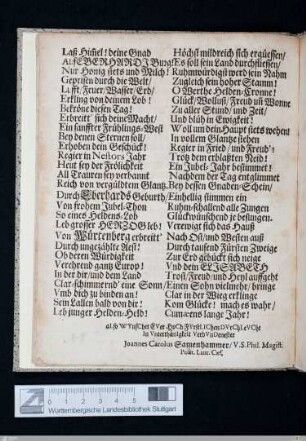 Laß Himel! deine Gnad
Auf EBERHARD JI Burg
Nur Honig stets und Milch!
Gepriesen durch die Welt/
Lufft/Feuer/Wasser/Erd/
Erkling von deinem Lob!
Bekröne diesen Tag!
Erbreit sich deine Macht/
Ein sanffter Frühlings-West
Bey denen Sternen soll
Erhoben dein Geschück!
Regier in Nestors Jahr
Heut sey der Frölichkeit
All Trauren sey verbannt
Reich von vergüldtem Glantz
Durch Eberhards Geburth
Von frohem Jubel-Thon
So eines Heldens-Lob
Leb grosser HERZOG leb!
Von Würtenberg erbreit
Durch ungezählte Aest!
Ob deren Würdigkeit
Verehrend gantz Europ!
In der dir und dem Land
Clar-schimmernd' eine Sonn/
Umb dich zu binden an!
Sein Lallen bald von dir!
Leb junger Helden-Held!
Höchst mildreich sich ergiessen/
Es soll sein Land durchfliessen/
Ruhmwürdigst werd sein Nahm
Zugleich sein hoher Stamm!
O Werthe Helden-Cronne!
Glück/Wollust/Freud uñ Wonne
Zu aller Stund/und Zeit/
Und blüh in Ewigkeit!
Woll um dein Haupt stets wehen!
In vollem Glantze stehen
Regier in Fried/und Freud!
Trotz dem erblaßten Neid!
Ein Jubel-Jahr bestimmet!
Nachdem der Tag erglimmet
Bey dessen Gnaden-Schein/
Einhellig stimmen ein
Ruhm-schallend alle Zungen
Glückwünschend je besungen.
Verewigt sich das Hauß
Nach Ost/und Westen auß
Durch tausend Fürsten Zweige
Zur Erd gebückt sich neige
Und dem ELISABETH
Trost/Freud und Heyl auffgeht
Einen Sohn vielmehr/bringe
Clar in der Wieg erklinge
Kom Glücke! mach es wahr/
Cum æneus lange Jahr!
Joannes Carolus Samenhammer/V.S. Phil. Magist.
Poët. Laur. Cæs.
Württembergische Landesbibliothek Stuttgart